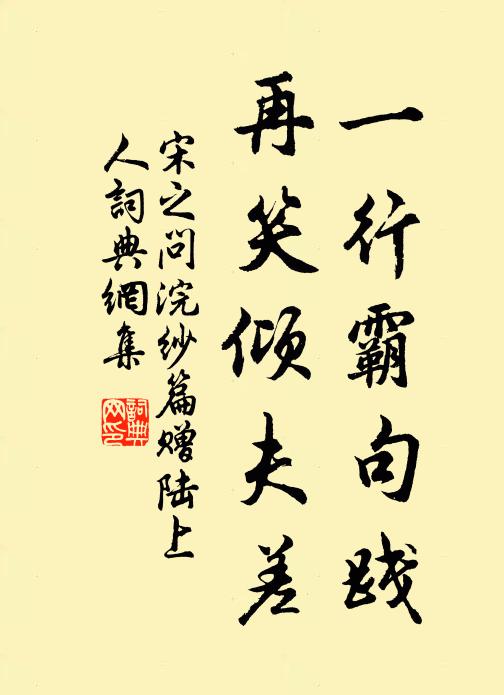 一行霸句践
再笑倾夫差
宋之问浣纱篇赠陆上
人词典網集
詞典
网印